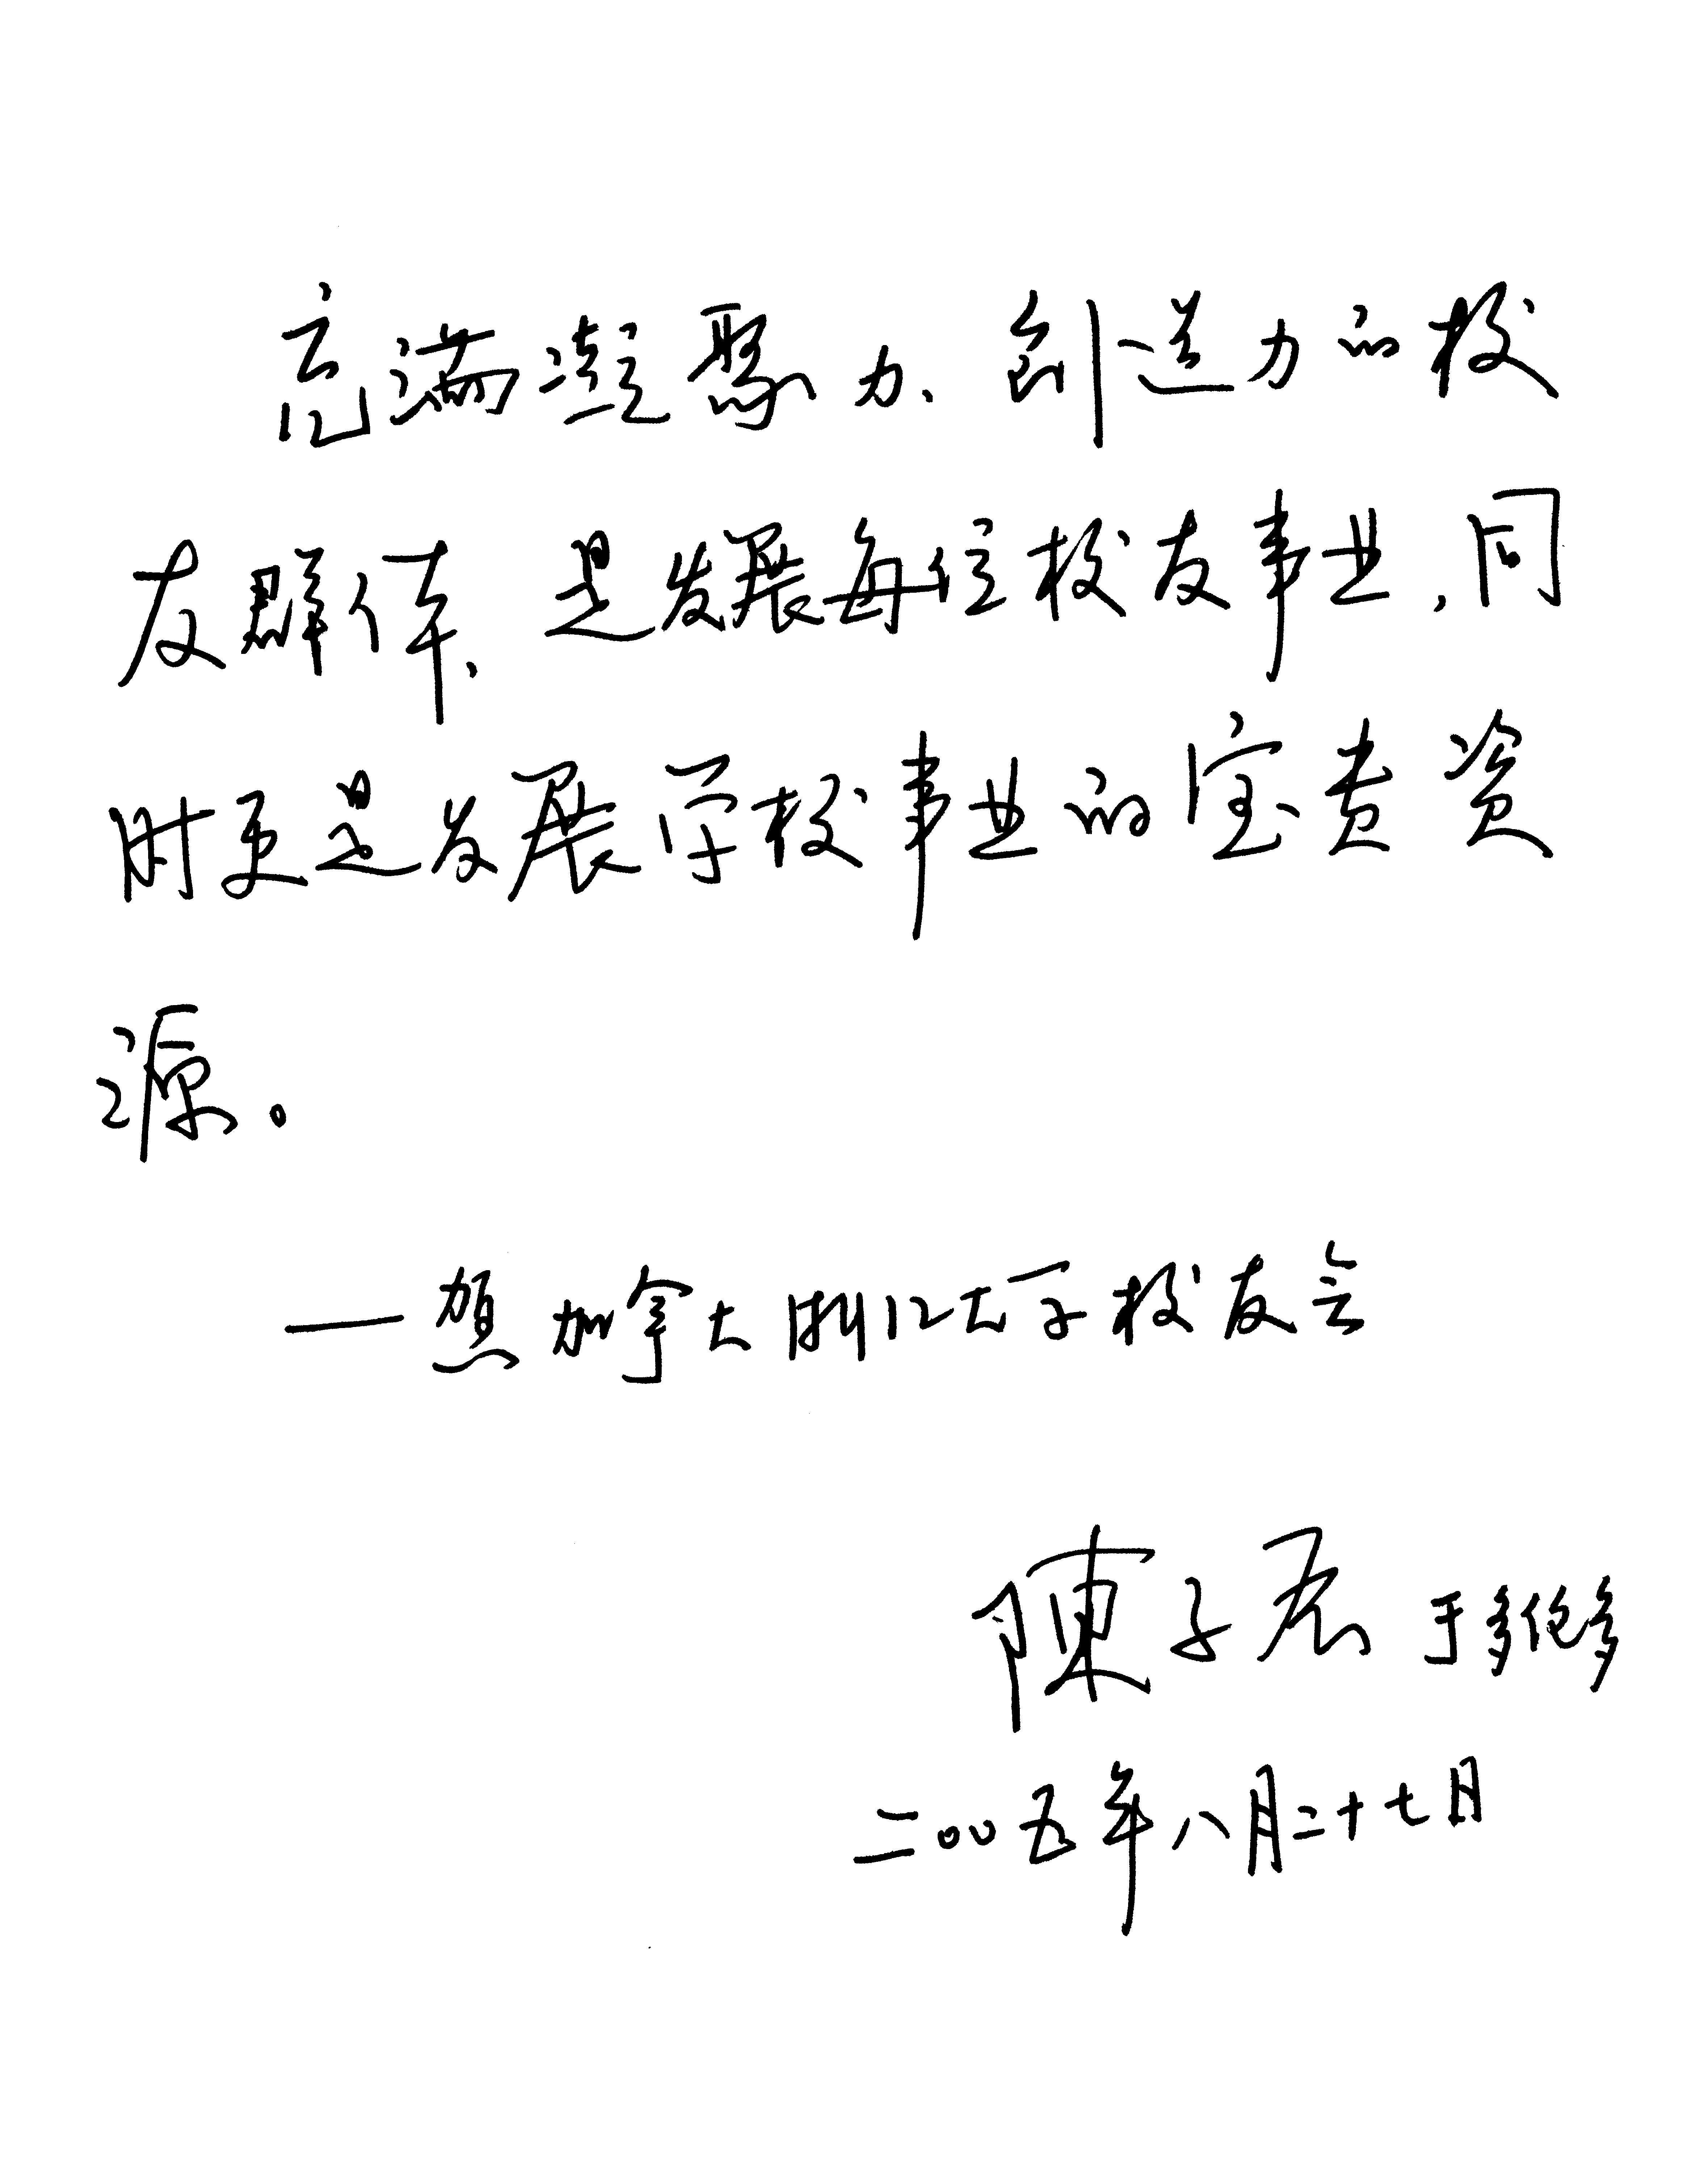 充满凝聚力、创造力的校
友群体，是发展每位校友事业，同
时更是发展学校事业的宝贵资
源。
—贺加拿大浙江大学校友会
陳子辰 于多伦多
二00五年八月二十七日